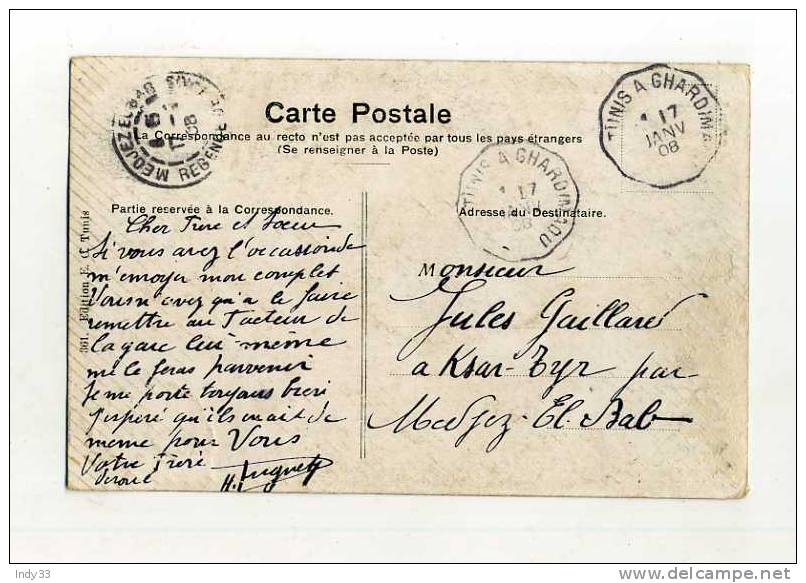 Carte Postale
La Correspondance au recto n'est pas acceptée par tous les pays étrangers
(Se renseigner à la Poste)
MEDJEZ EL BAB
REGENCE
TUNIS A GHARDIMA
17
JANV
08
TUNIS A GHARDIMAOU
17
08
Partie reservée à la Correspondance.
Cher Frere et Soeur
Si vous avez l'occassion de
m'envoyer mon complet
Vous n'avez qu'a le faire
remettre au Facteur de
la gare lui même
me le feras parvenir
Je me porte toujours bien
J'espère qu'ils en ait de
meme pour Vous
Votre Frere
H. Huguet
361. Edition E. C. Tunis
Adresse du Destinataire.
Monsieur
Jules Gaillard
a Ksar-Tyr par
Medjez-El-Bab
Indy33
delcampe.net